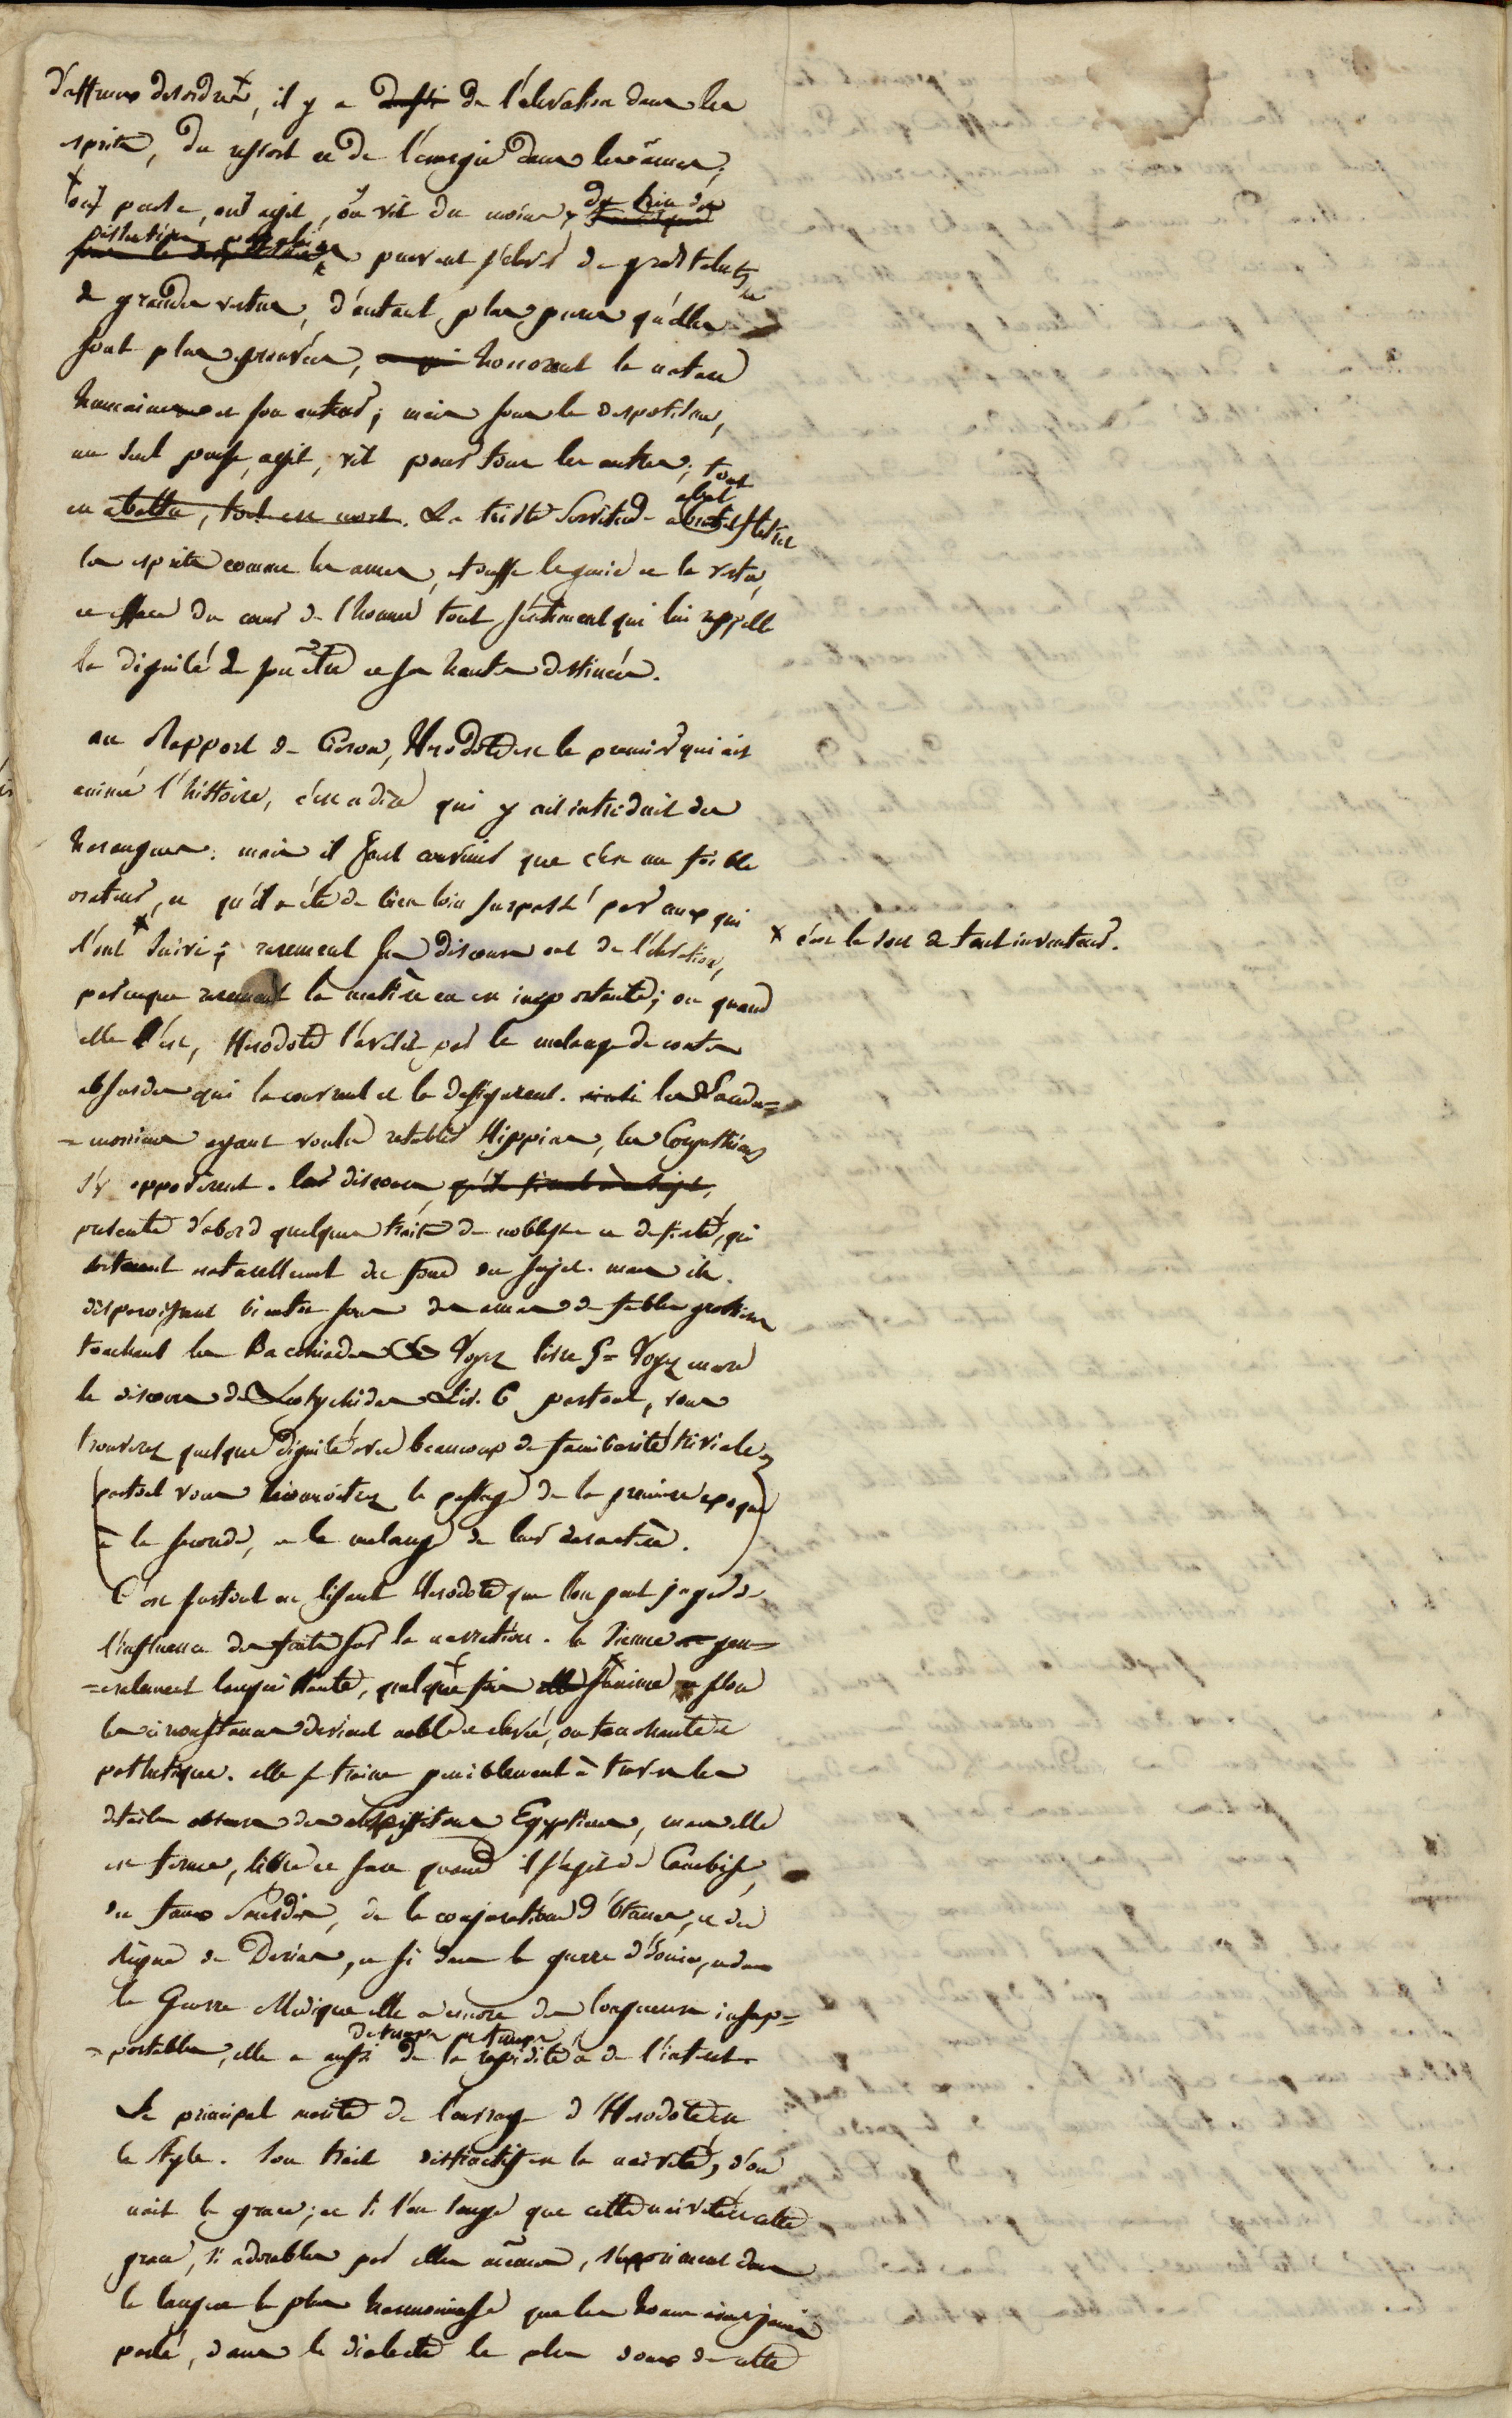 d'affreux desordres, il y a aussi de l'elevation dans les
esprits, du ressort et de l'énergie dans les âmes;
tout pense, tout agit, où vit du moins, du sein des
dissentions publiques peuvent s'elever de grds talents et
de grandes vertus, d'autant plus pures qu'elles
sont plus eprouvées, honorent la nature
humaine et son auteur; mais sous le despotisme,
un seul pense, agit, vit pour tous les autres; tout
en abattu, tout est mort. La triste servitude abat flétrit
les esprits comme les ames, etouffe le genie et la vertu,
et efface du cœur de l'homme tout sentiment qui lui rappelle
la dignité de son être et ses hautes destinées.
au Rapport de Ciceron, Herodote est le premier qui ait
animé l'histoire, c'est a dire qui y ait introduit des
harangues. mais il faut convenir que c'est un foible
orateur, et qu'il a été de bien loin surpassé par ceux qui
l'ont suivi; rarement ses discours ont de l'élévation,
x c'est le sort de tout inventeur.
parceque rarement la matière en est importante; ou quand
elle l'est, Herodote l'avilit par le melange de contes
absurdes qui la couvrent et la defigurent. les Lacede=
=moniens ayant voulu retablir Hippias, les Corynthiens
s'y opposèrent. leur discours
presente d'abord quelques traits de noblesse et de fierté, qui
sortent naturellement du fond du sujet. mais ils
disparoissent bientot sous des amas de fables grossieres
touchant les Bacchiades Voyez livre 5= Voyez encore
le discours de Leotychides Liv. 6 partout, vous
trouverez quelque dignité avec beaucoup de familiarité triviale,
partout vous reconnoitrez le passage de la premiere epoque
à la seconde, et le melange de leur caractère.
C'est surtout en lisant Herodote que l'on peut juger de
l'influence des faits sur la narration. la sienne gene=
=ralement languissante, quelque fois s'anime, et selon
les circonstances devient noble et elevée, ou touchante et
pathetique. elle se traine peniblement à travers les
details obscurs des Egyptiens, mais elle
est ferme, libre et sure quand il s'agit de Cambise,
du faux Smerdis, de la conjuration d'Otanes, et du
Règne de Darius, et si dans la guerre d'Ionie, et dans
la Guerre Medique elle a encore des longueurs insup=
=portables, elle a aussi de temps en temps de la rapidité et de l'interet.
Le principal merite de l'ouvrage d'Herodote est
le style. Son trait distinctif est la naïveté, d'où
nait la grace; et si l'on songe que cette naïveté et cette
grace, si adorables par elles mêmes, s'expriment dans
la langue la plus harmonieuse que les hommes aient jamais
parlé, dans le dialecte le plus doux de cette